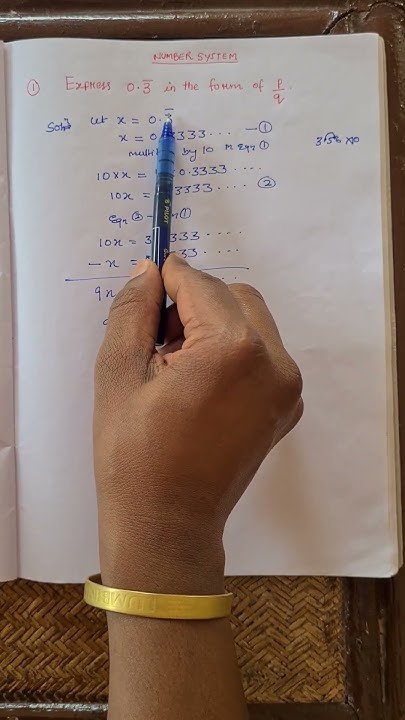 NUMBER SYSTEM
① Express 0.3̅ in the form of p/q.
Let x = 0.3̅
x = 0.3333.... —①
by 10 in Eqn ①
10×x = 0.3333....
10x = 3333.... ②
Eqn ② - ①
10x = 3 333....
- x = 33....
9x
PILOT